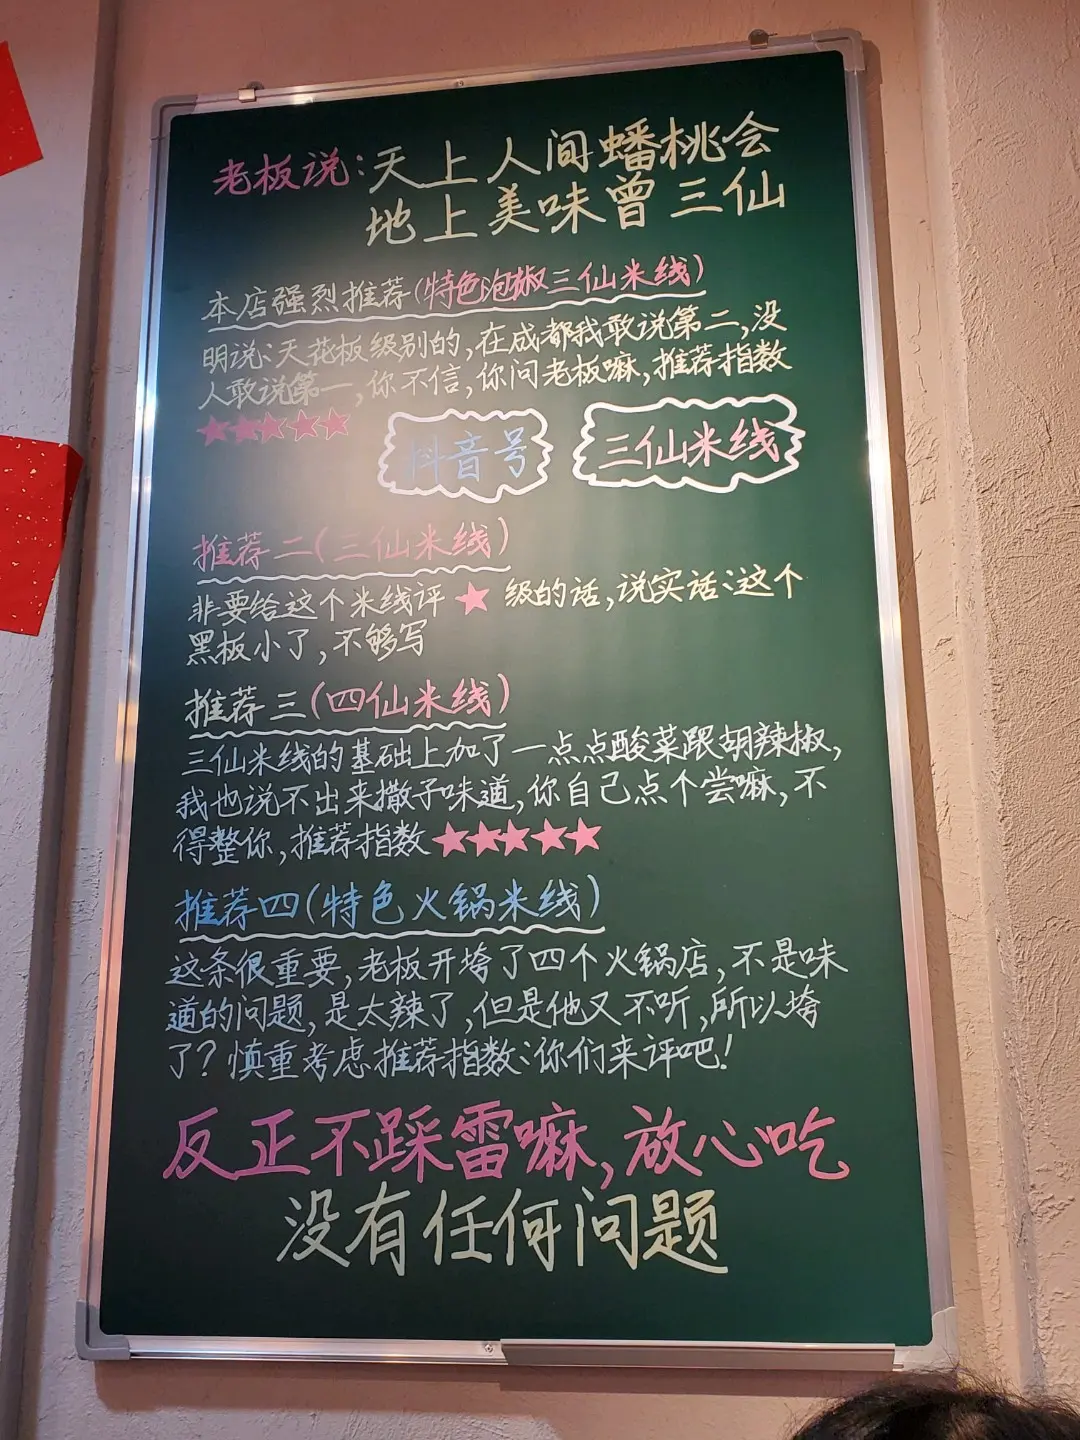 老板说:天上人间蟠桃会
地上美味曾三仙
本店强烈推荐(特色泡椒三仙米线)
明说:天花板级别的,在成都我敢说第二,没
人敢说第一,你不信,你问老板嘛,推荐指数
★★★★★
抖音号 三仙米线
推荐二(三仙米线)
非要给这个米线评★级的话,说实话:这个
黑板小了,不够写
推荐三(四仙米线)
三仙米线的基础上加了一点点酸菜跟胡辣椒,
我也说不出来撒子味道,你自己点个尝嘛,不
得整你,推荐指数★★★★★
推荐四(特色火锅米线)
这条很重要,老板开垮了四个火锅店,不是味
道的问题,是太辣了,但是他又不听,所以垮
了?慎重考虑推荐指数:你们来评吧!
反正不踩雷嘛,放心吃
没有任何问题